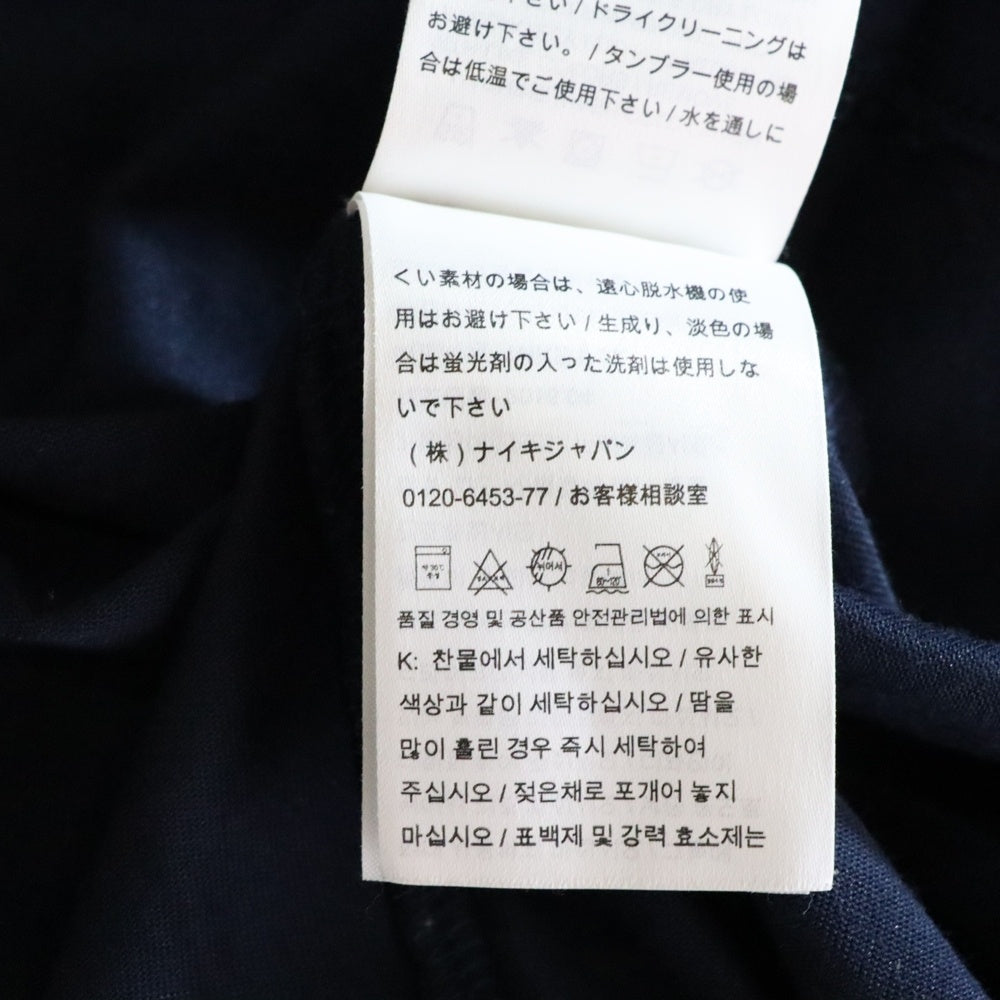 下さい / ドライクリーニングは
お避け下さい。 / タンブラー使用の場
合は低温でご使用下さい / 水を通しに
くい素材の場合は、遠心脱水機の使
用はお避け下さい / 生成り、淡色の場
合は蛍光剤の入った洗剤は使用しな
いで下さい
(株)ナイキジャパン
0120-6453-77 / お客様相談室
약30℃ 중성 염소표백 뉘어서 1 80~120℃ 드라이
품질 경영 및 공산품 안전관리법에 의한 표시
K: 찬물에서 세탁하십시오 / 유사한
색상과 같이 세탁하십시오 / 땀을
많이 흘린 경우 즉시 세탁하여
주십시오 / 젖은채로 포개어 놓지
마십시오 / 표백제 및 강력 효소제는